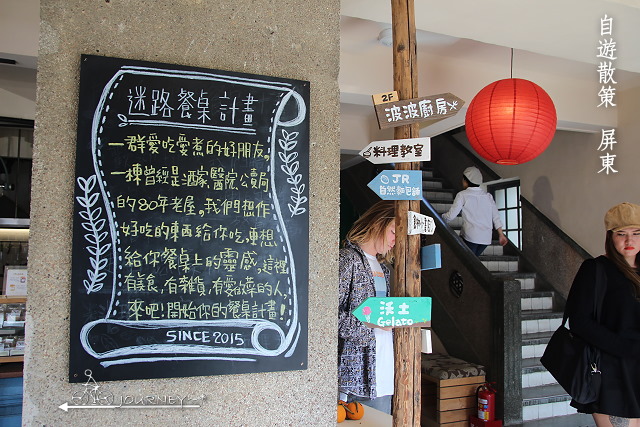 迷路餐桌計畫
一群愛吃愛煮的好朋友,
一棟曾經是酒家、醫院、公賣局
的80年老屋。我們想作
好吃的東西給你吃,更想
給你餐桌上的靈感。這裡
有美食,有教室,有愛做菜的人,
來吧!開始你的餐桌計畫!
SINCE 2015
JOURNEY
2F
波波廚房
料理教室
JR
沃土
Gelato
自遊散策 屏東